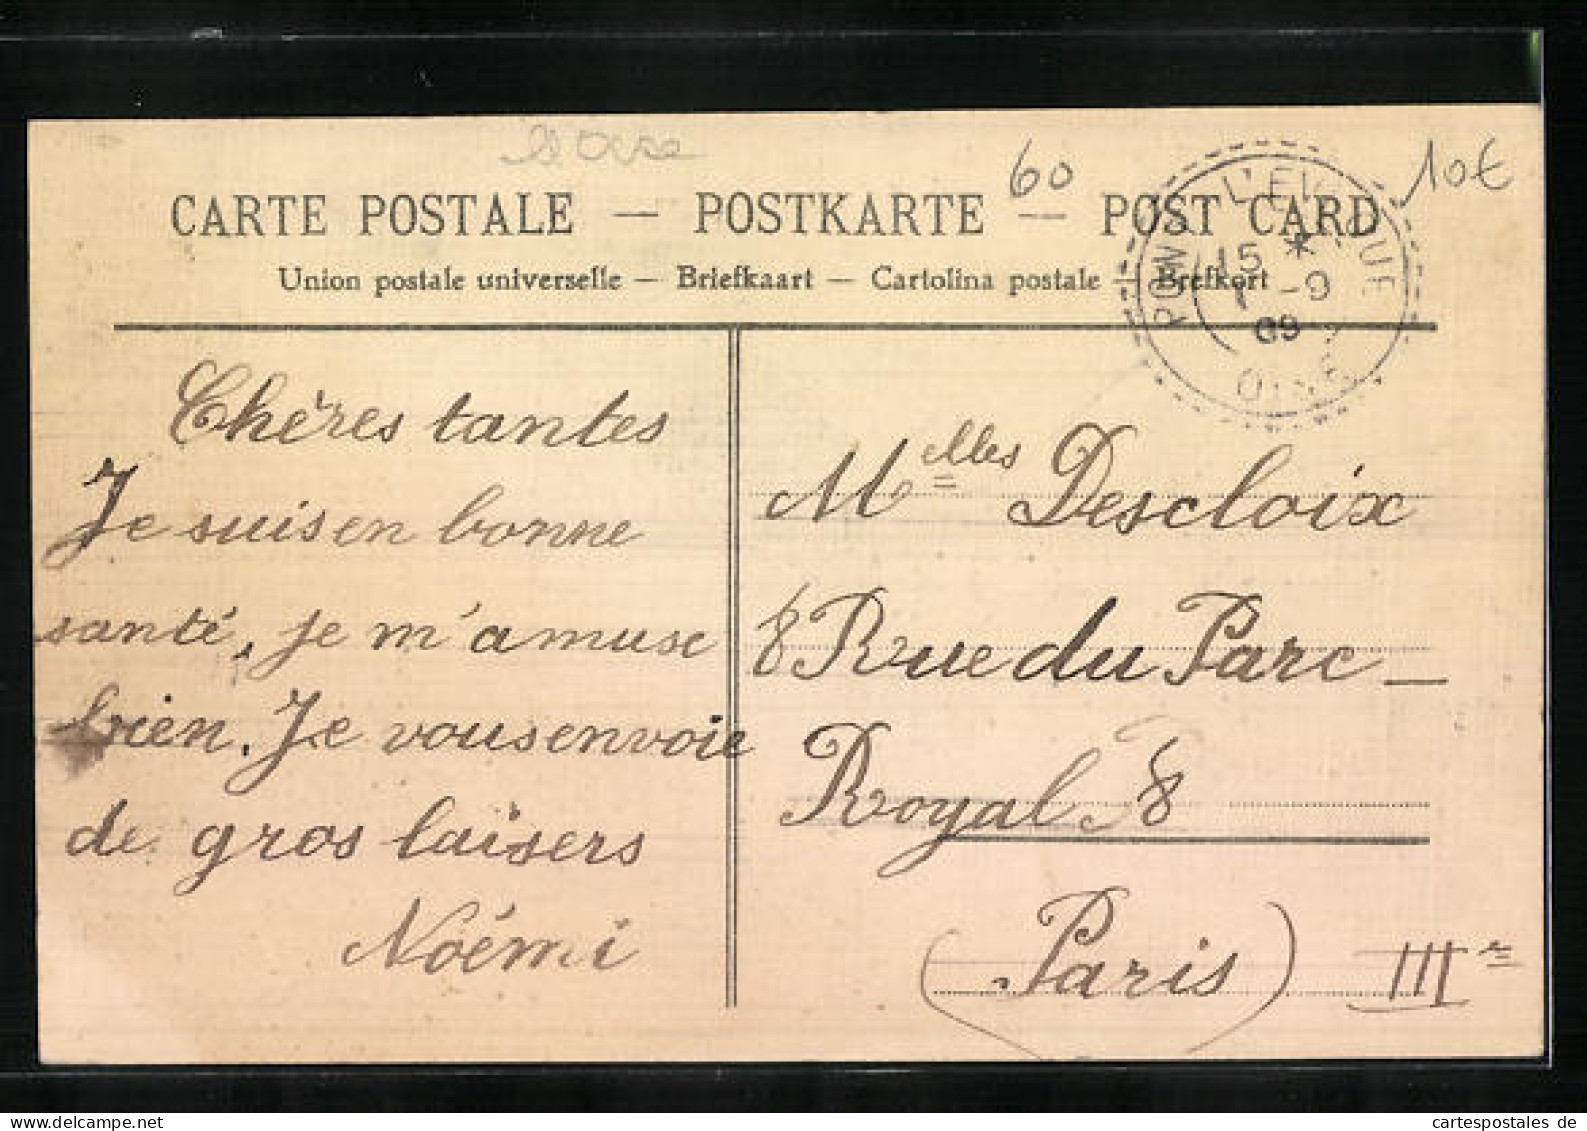 60
10€
CARTE POSTALE — POSTKARTE — POST CARD
Union postale universelle — Briefkaart — Cartolina postale — Brefkort
L'EVEQUE
15 *
1 -9
09
OISE
Chères tantes
Je suis en bonne
santé, je m'amuse
bien. Je vous envoie
de gros baisers
Noémi
Melles Descloix
8 Rue du Parc –
Royal 8
(Paris) IIIe
cartespostales de